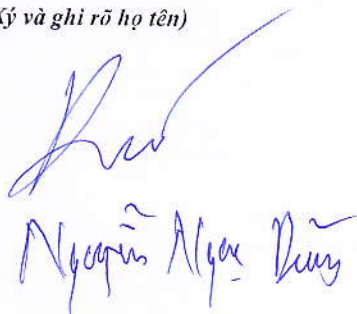 Ký và ghi rõ họ tên)
Nguyễn Ngọc Dũng